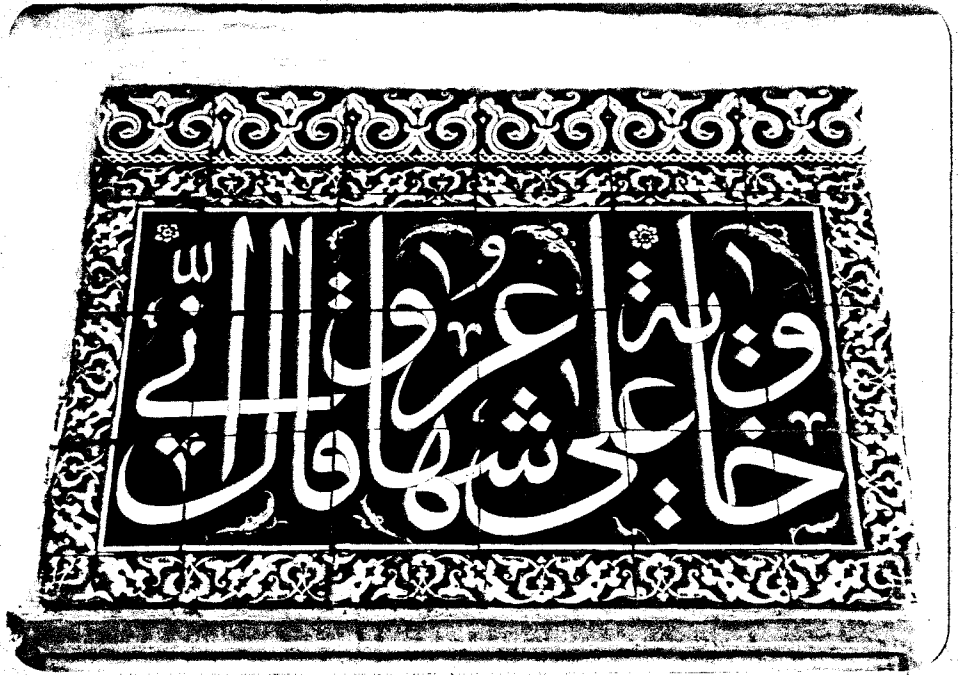 خاوية على عروشها قال أنى